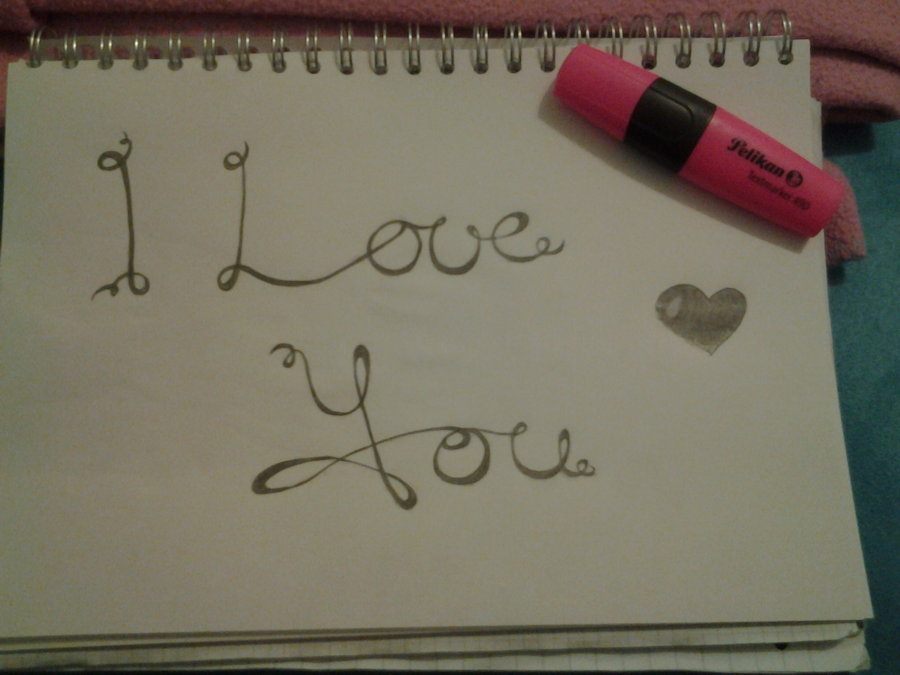 I Love
You
Pelikan
Textmarker 490